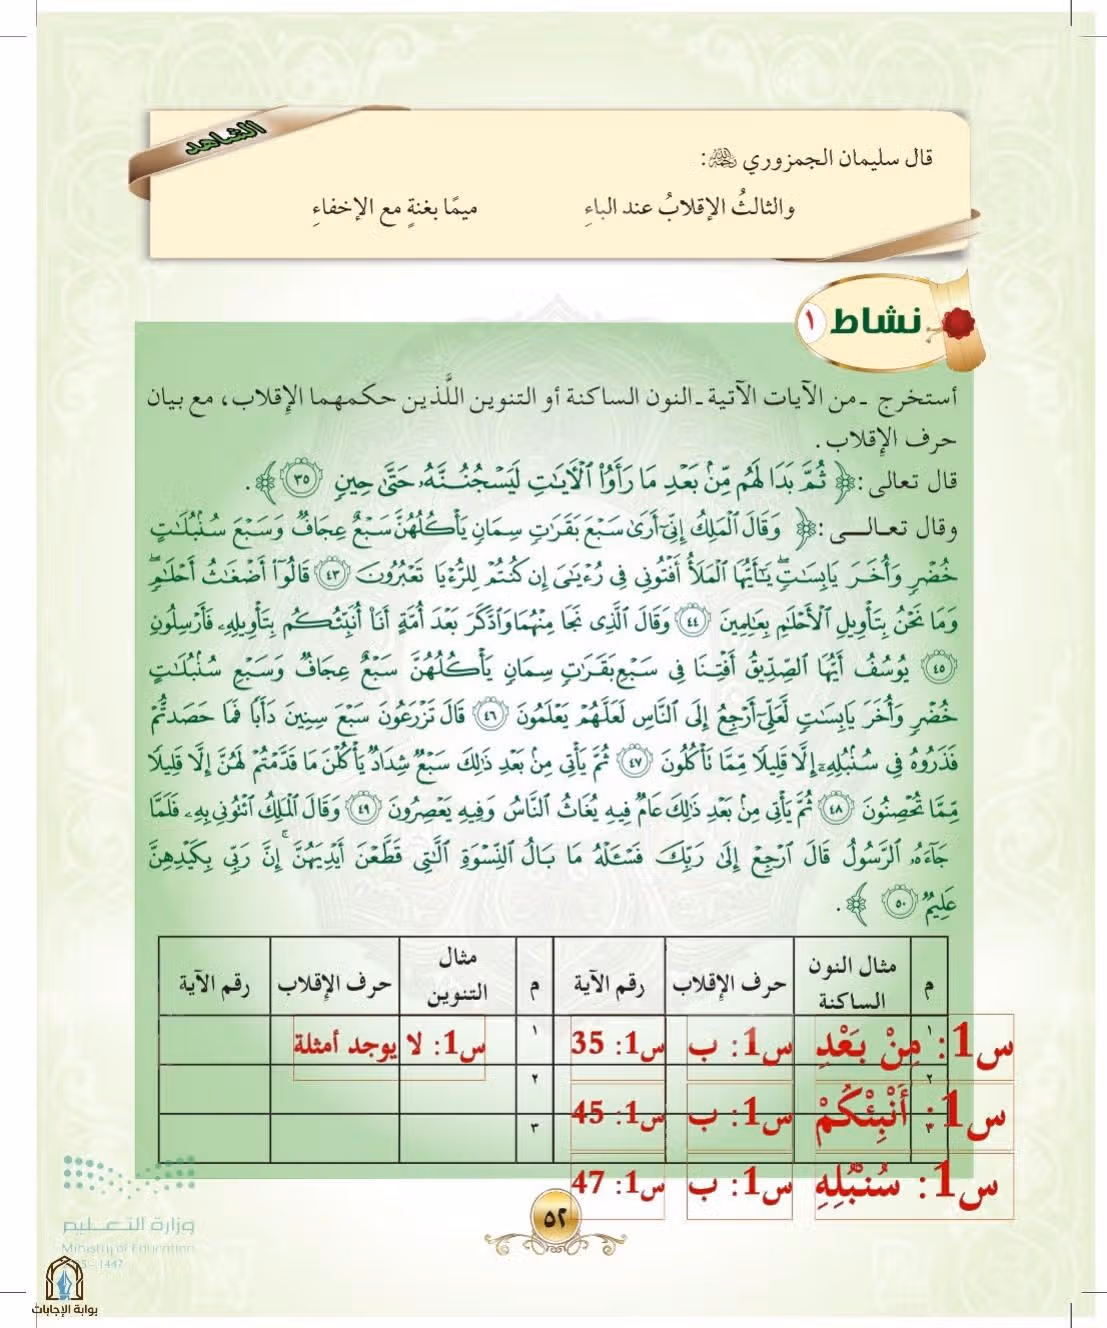 الشاهد
قال سليمان الجمزوري رحمه الله:
والثالثُ الإقلابُ عند الباءِ ميمًا بغنةٍ مع الإخفاءِ
نشاط ١
أستخرج ـ من الآيات الآتية ـ النون الساكنة أو التنوين اللَّذين حكمهما الإقلاب، مع بيان
حرف الإقلاب.
قال تعالى: ﴿ ثُمَّ بَدَا لَهُم مِّنۢ بَعْدِ مَا رَأَوُا۟ الْآيَاتِ لَيَسْجُنُنَّهُۥ حَتَّىٰ حِينٍ ٣٥ ﴾.
وقال تعالى: ﴿ وَقَالَ الْمَلِكُ إِنِّي أَرَىٰ سَبْعَ بَقَرَاتٍ سِمَانٍ يَأْكُلُهُنَّ سَبْعٌ عِجَافٌ وَسَبْعَ سُنۢبُلَاتٍ
خُضْرٍ وَأُخَرَ يَابِسَاتٍ ۖ يَا أَيُّهَا الْمَلَأُ أَفْتُونِي فِي رُءْيَايَ إِن كُنتُمْ لِلرُّءْيَا تَعْبُرُونَ ٤٣ قَالُوٓا أَضْغَاثُ أَحْلَامٍ ۖ
وَمَا نَحْنُ بِتَأْوِيلِ الْأَحْلَامِ بِعَالِمِينَ ٤٤ وَقَالَ الَّذِي نَجَا مِنْهُمَا وَادَّكَرَ بَعْدَ أُمَّةٍ أَنَا۠ أُنَبِّئُكُم بِتَأْوِيلِهِۦ فَأَرْسِلُونِ
٤٥ يُوسُفُ أَيُّهَا الصِّدِّيقُ أَفْتِنَا فِي سَبْعِ بَقَرَاتٍ سِمَانٍ يَأْكُلُهُنَّ سَبْعٌ عِجَافٌ وَسَبْعِ سُنۢبُلَاتٍ
خُضْرٍ وَأُخَرَ يَابِسَاتٍ لَّعَلِّي أَرْجِعُ إِلَى النَّاسِ لَعَلَّهُمْ يَعْلَمُونَ ٤٦ قَالَ تَزْرَعُونَ سَبْعَ سِنِينَ دَأَبًا فَمَا حَصَدتُّمْ
فَذَرُوهُ فِي سُنۢبُلِهِۦٓ إِلَّا قَلِيلًا مِّمَّا تَأْكُلُونَ ٤٧ ثُمَّ يَأْتِي مِنۢ بَعْدِ ذَٰلِكَ سَبْعٌ شِدَادٌ يَأْكُلْنَ مَا قَدَّمْتُمْ لَهُنَّ إِلَّا قَلِيلًا
مِّمَّا تُحْصِنُونَ ٤٨ ثُمَّ يَأْتِي مِنۢ بَعْدِ ذَٰلِكَ عَامٌ فِيهِ يُغَاثُ النَّاسُ وَفِيهِ يَعْصِرُونَ ٤٩ وَقَالَ الْمَلِكُ ائْتُونِي بِهِۦ ۖ فَلَمَّا
جَاءَهُ الرَّسُولُ قَالَ ارْجِعْ إِلَىٰ رَبِّكَ فَسْـَٔلْهُ مَا بَالُ النِّسْوَةِ الَّٰتِي قَطَّعْنَ أَيْدِيَهُنَّ ۚ إِنَّ رَبِّي بِكَيْدِهِنَّ
عَلِيمٌ ٥٠ ﴾.
م مثال النون الساكنة حرف الإقلاب رقم الآية م مثال التنوين حرف الإقلاب رقم الآية
١ س1: مِنْ بَعْدِ س1: ب س1: 35 ١ س1: لا يوجد أمثلة
٢ س1: أَنْبِئْكُمْ س1: ب س1: 45 ٢
٣ س1: سُنْبُلِهِ س1: ب س1: 47 ٣
وزارة التعليم
Ministry of Education
1447
٥٢
بوابة الإجابات